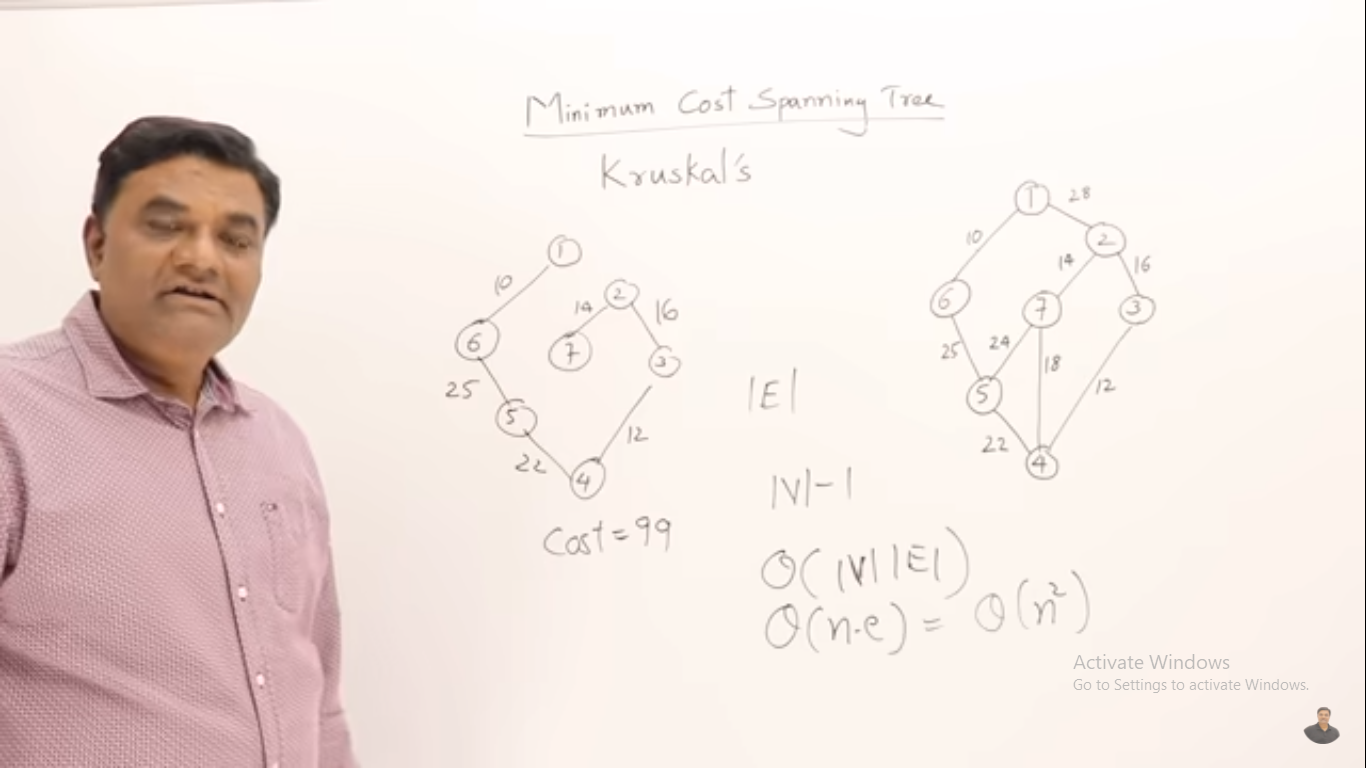 Minimum Cost Spanning Tree
Kruskal's
1
10
2
14
16
6
7
3
25
5
12
22
4
Cost = 99
|E|
|V|-1
O(|V||E|)
O(n.e) = O(n²)
1
28
2
10
14
16
6
7
3
25
24
18
5
12
22
4
Activate Windows
Go to Settings to activate Windows.